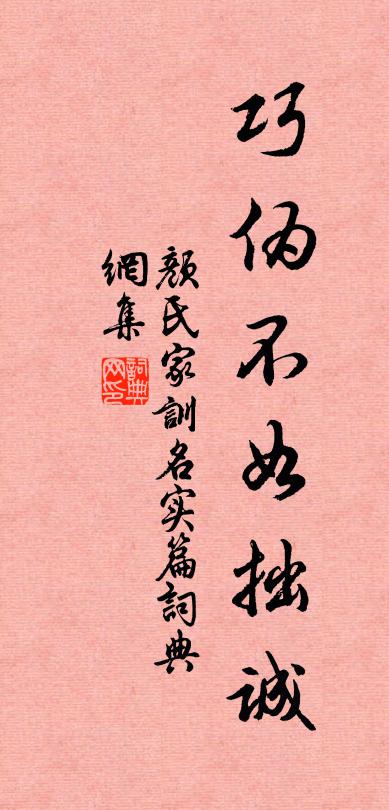 巧伪不如拙诚
颜氏家训名实篇詞典
網集
詞典
网印